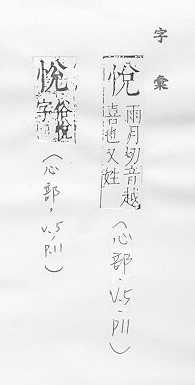 字彙
悅 雨月切音越
喜也又姓
(心部．V.5．P11)
恱 俗悅
字
(心部，V.5，P.11)